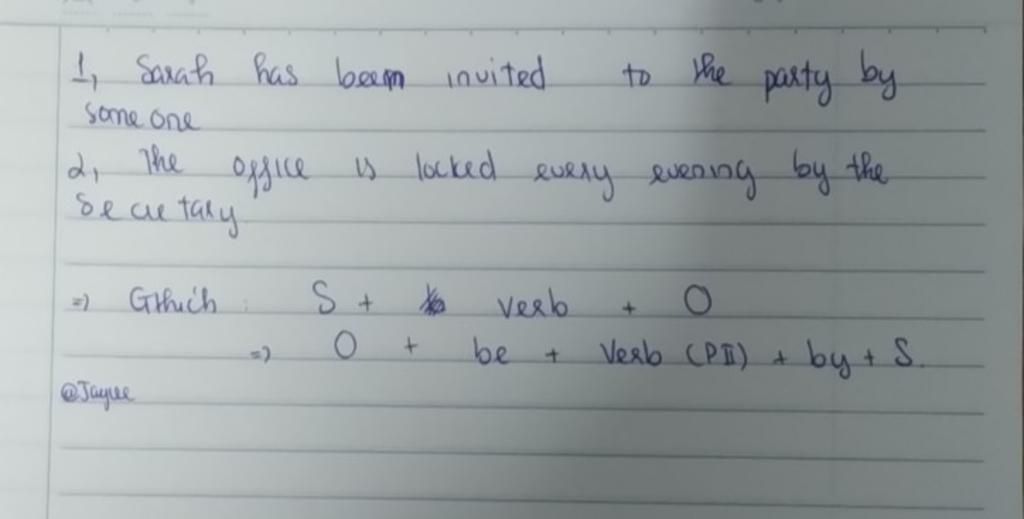 1, Sarah has been invited to the party by
some one
2, The office is locked every evening by the
secretary
=) Gthích : S + verb + O
=) O + be + Verb (PII) + by + S.
@Jayee